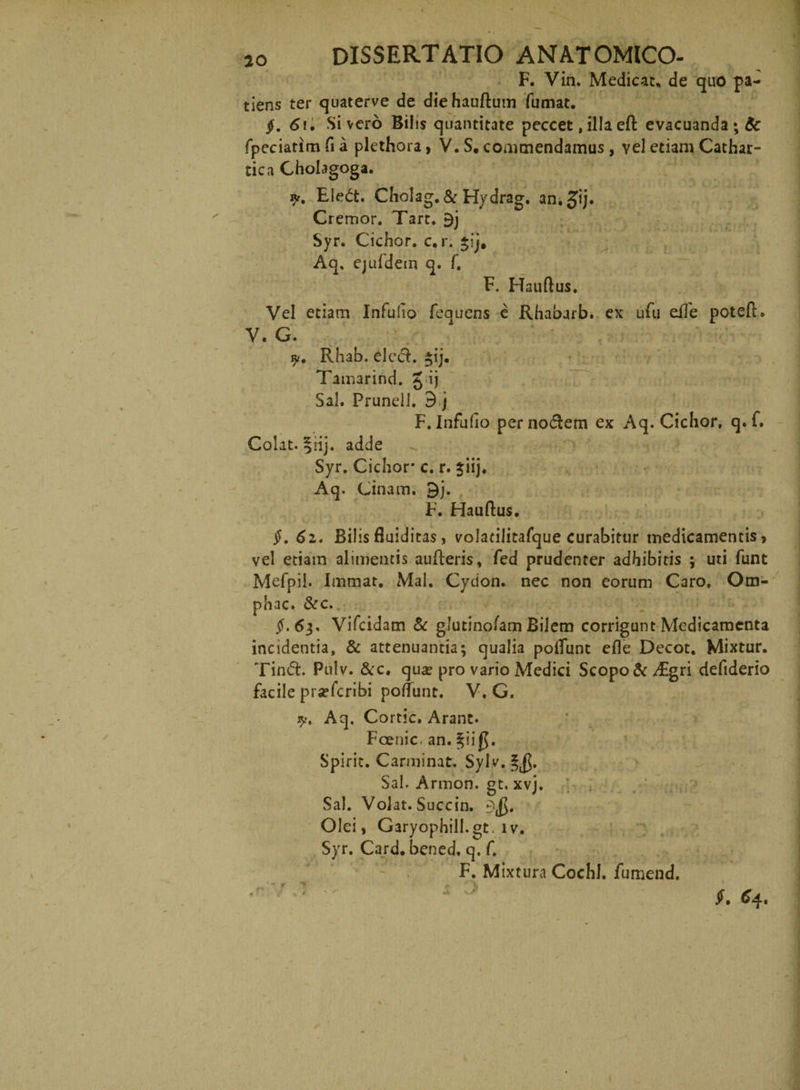 20 DISSERTATIO ANATOMICO-
F. Vin. Medicat. de quo pa-
tiens ter quaterve de die hauſtum ſumat.
§. 61. Si verò Bilis quantitate peccet, illa eſt evacuanda; &
ſpeciatìm ſi à plethora, V. S. commendamus, vel etiam Cathar-
tica Cholagoga.
℞. Elect. Cholag. & Hydrag. an. ʒij.
Cremor. Tart. ℈j
Syr. Cichor. c. r. ʒij.
Aq. ejuſdem q. ſ.
F. Hauſtus.
Vel etiam Infuſio ſequens è Rhabarb. ex uſu eſſe poteſt.
V. G.
℞. Rhab. elect. ʒij.
Tamarind. ʒ ij
Sal. Prunell. ℈ j
F. Infuſio per noctem ex Aq. Cichor. q. ſ.
Colat. ℥iij. adde
Syr. Cichor. c. r. ʒiij.
Aq. Cinam. ℈j.
F. Hauſtus.
§. 62. Bilis fluiditas, volatilitaſque curabitur medicamentis,
vel etiam alimentis auſteris, ſed prudenter adhibitis ; uti ſunt
Meſpil. Immat. Mal. Cydon. nec non eorum Caro. Om-
phac. &c.
§. 63. Viſcidam & glutinoſam Bilem corrigunt Medicamenta
incidentia, & attenuantia; qualia poſſunt eſſe Decot. Mixtur.
Tinct. Pulv. &c. quæ pro vario Medici Scopo & Ægri deſiderio
facile præſcribi poſſunt. V. G.
℞. Aq. Cortic. Arant.
Fœnic. an. ℥iiß.
Spirit. Carminat. Sylv. ℥ß.
Sal. Armon. gt. xvj.
Sal. Volat. Succin. ℈ß.
Olei, Garyophill. gt. iv.
Syr. Card. bened. q. ſ.
F. Mixtura Cochl. ſumend.
§. 64.